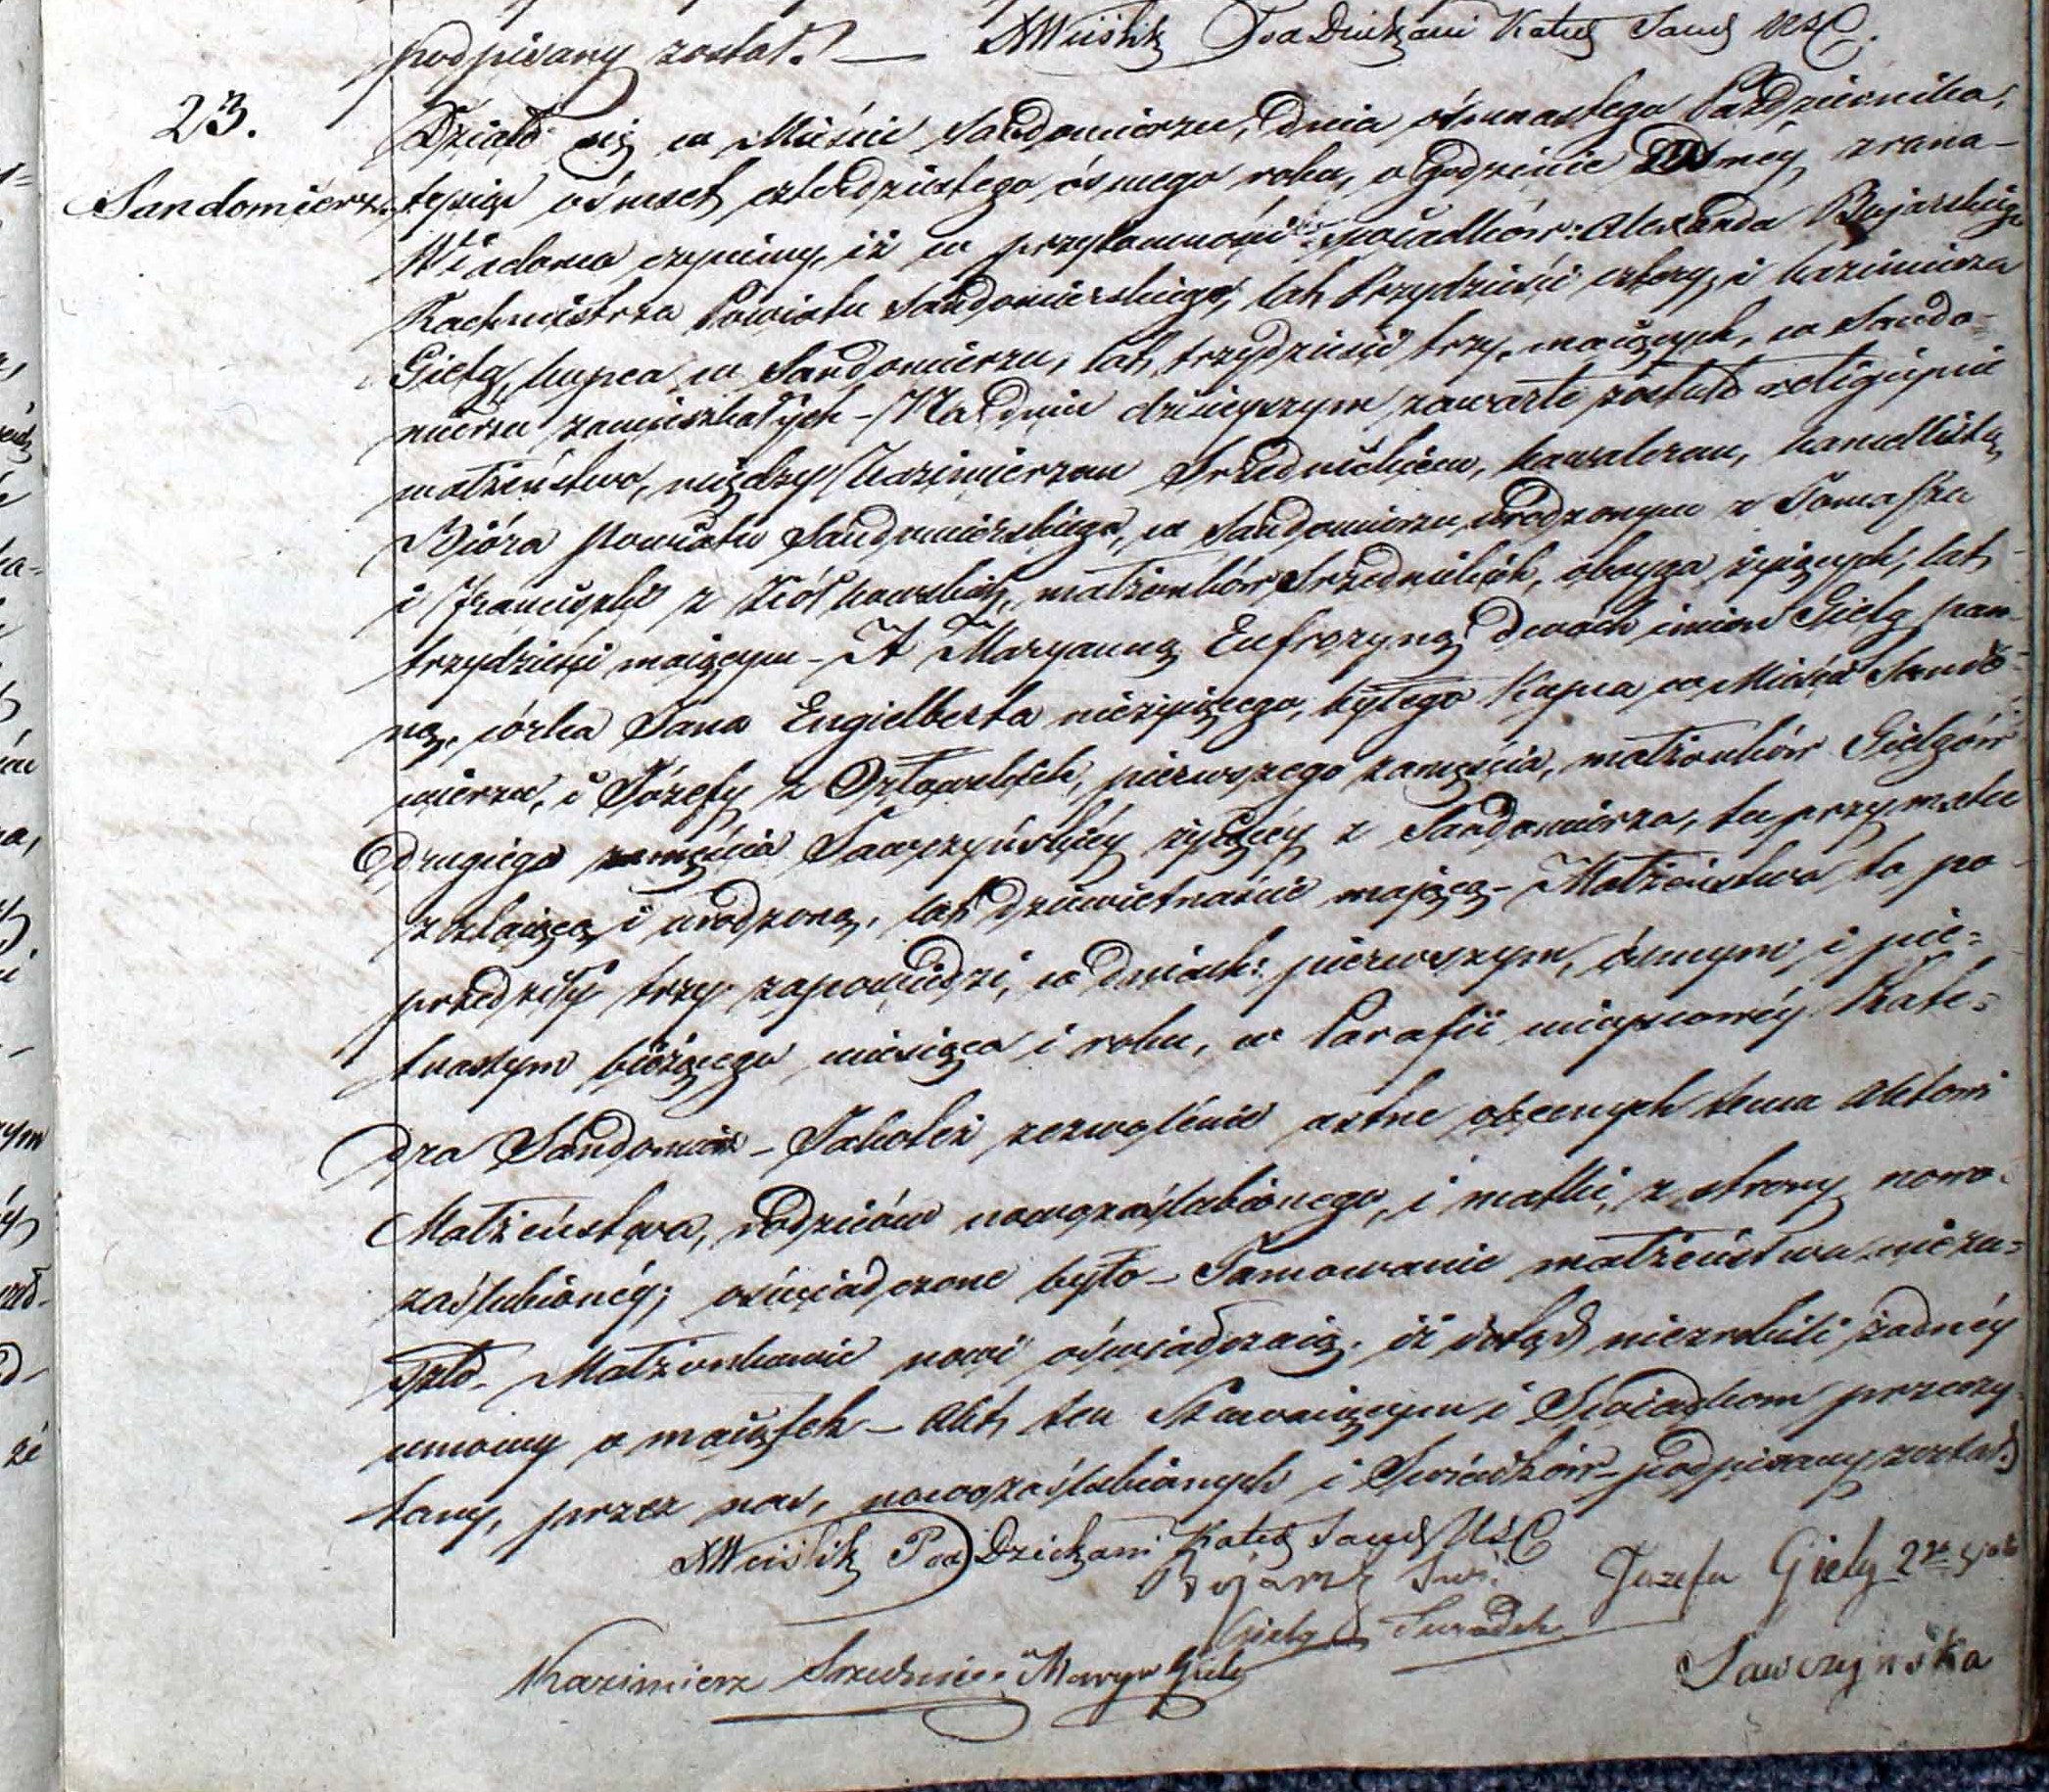 podpisany został. — XWiśliz PodDziekani Kated Sand USC.
23.
Sandomierz.
Działo się w Mieście Sandomierzu, dnia ósmnastego Października,
tysiąc ośmset czterdziestego ósmego roku, o godzinie ósméy zrana –
Wiadomo czyniemy, iż w przytomności świadków: Alexandra Bujarskiego
Rachmistrza Powiatu Sandomierskiego, lat trzydzieści cztery, i Kazimierza
Giełg, kupca w Sandomierzu, lat trzydzieści trzy, maiących, w Sando-
mierzu zamieszkałych – Na dniu dzisieyszym zawarte zostało religijnie
małżeństwo, między Kazimierzem Srzednickiem, kawalerem, kancellistą
Bióra Powiatu Sandomierskiego, w Sandomierzu, urodzonym z Tomasza
i Franciszki z Ziółkowskich, małżonków Srzednickich, oboyga żyjących, lat
trzydzieści maiącym – A Maryanną Eufrozyną dwóch imion Giełg pan-
ną, córką Jana Engielberta nieżyjącego, byłego Kupca w Mieście Sando-
mierzu, i Józefy z Orłowskich, pierwszego zamęścia, małżonków Giełgów
drugiego zamęścia Sawczyńskiéy żyjącéy z Sandomierza, tu przy matce
zostaiącą i urodzoną, lat dziewiętnaście mającą – Małżeństwo to po-
przedziły trzy zapowiedzi, w dniach: pierwszym, ósmym i pię-
tnastym bieżącego miesiąca i roku, w Parafii mieyscowéy Kate-
dra Sandomierz – Jakoteż zezwolenie ustne obecnych temu Aktowi
Małżeństwa, rodziców nowozaślubionego, i matki, z strony nowo-
zaślubionéy; oświadczone było – Tamowanie małżeństwa nieza-
szło – Małżonkowie nowi oświadczaią, iż dotąd niezrobili żadnéy
umowy o maiątek – Akt ten Stawaiącym i Swiadkom przeczy-
tany, przez nas, nowozaślubionych i Swiadków podpisany został.
XWiśliz PodDziekani Kated Sand USC
Józefa Giełg 2go ślubu
Giełg Swiadek
Kazimierz Srzednicki Marya Giełg
Sawczyńska